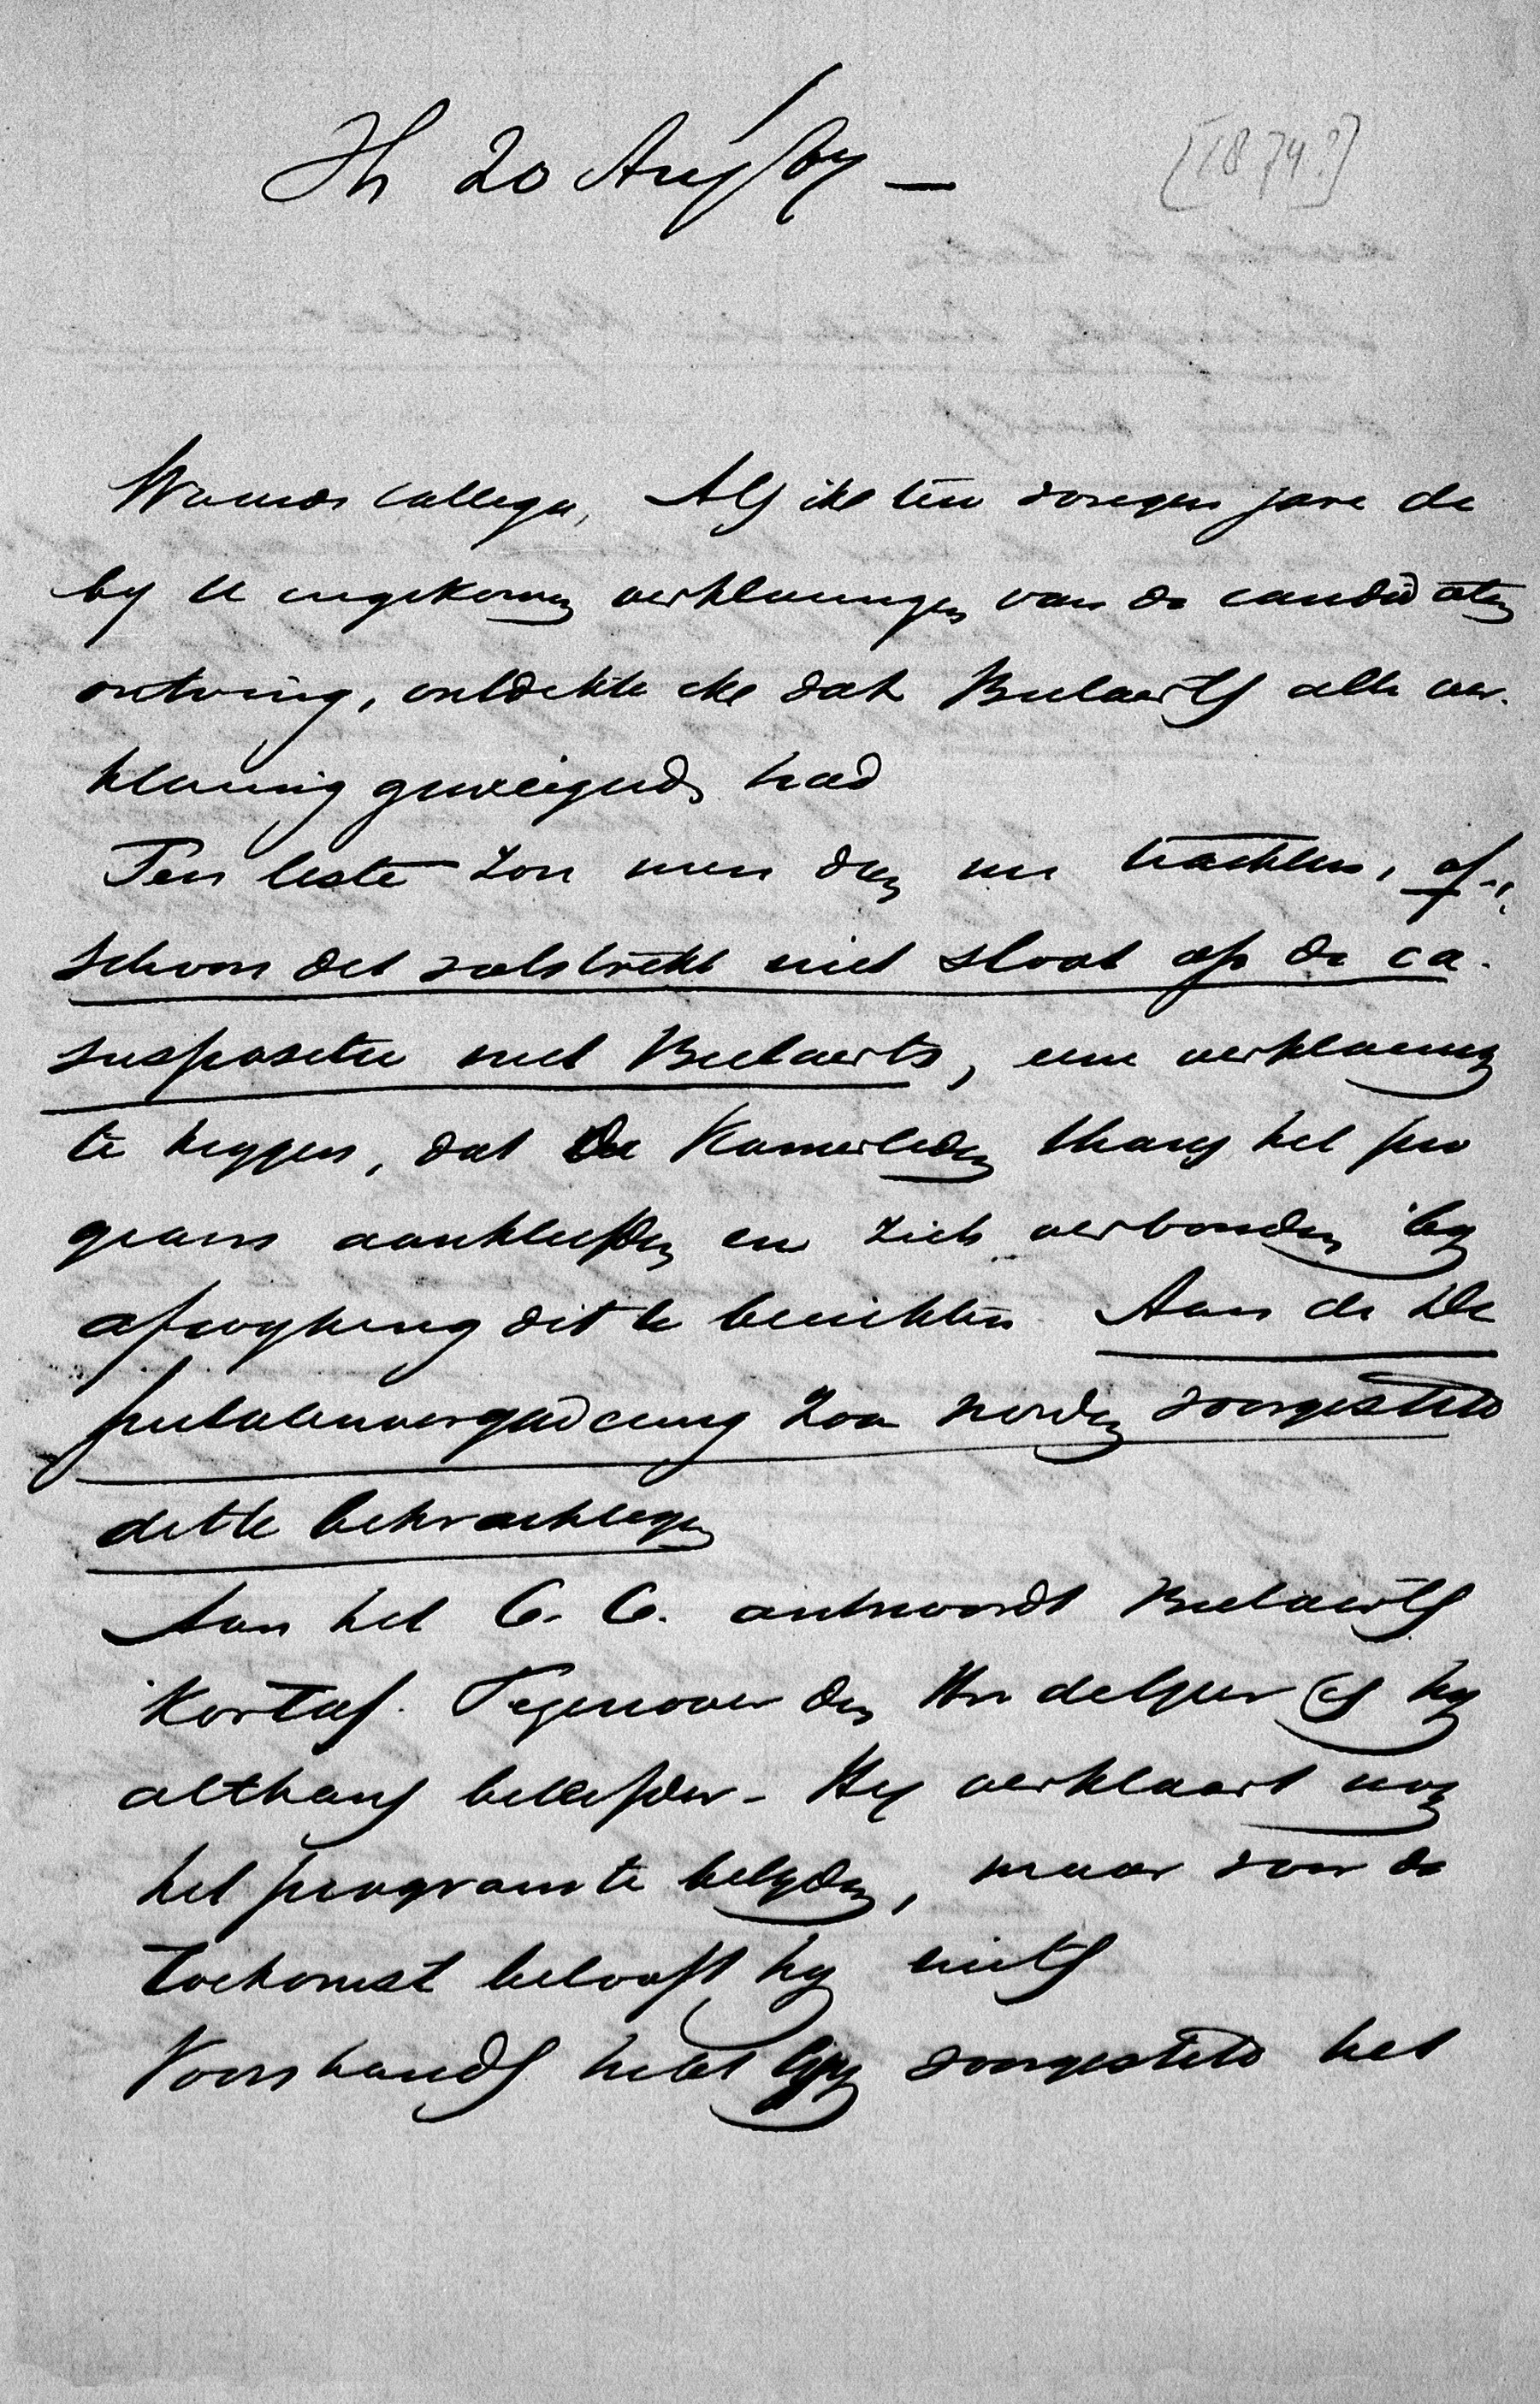 Hh 20 Aug/84 —
[1874?]
Waarde Collega, Als ik ten vorigen jare de
by U ingekomen verklaringen van de candidaten
ontving, ontdekte ik dat Beelaerts alle ver-
klaring geweigerd had
Ten leste zou men dan nu trachten, of-
schoon dit volstrekt niet slaat op de ca-
suspositie met Beelaerts, eene verklaring
te krygen, dat de Kamerleden thans het pro
gram aankleefden en zich verbonden by
afwyking dit te berichten Aan de De
putatenvergadering zou worden voorgesteld
dit te bekrachtigen
Aan het C. C. antwoordt Beelaerts
Kortaf. Tegenover den Hr delger is hy
althans beleefder - Hy verklaart nog
het program te belyden, maar voor de
toekomst belooft hy niets
Voorshands hebt gy voorgesteld het